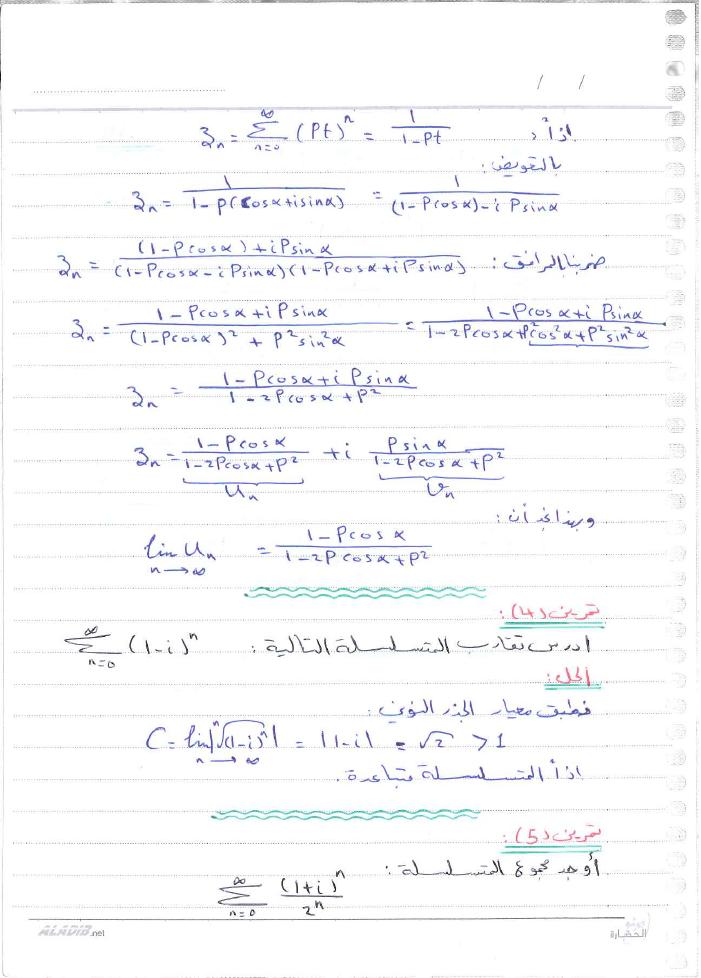 / /
إذاً: 3n = ∑_{n=0}^{∞} (Pt)^n = 1/(1-Pt)
بالتعويض:
3n = 1/(1-P(cosα+isinα)) = 1/((1-Pcosα)-i Psinα)
ضربنا بالمرافق: 3n = ((1-Pcosα)+iPsinα)/((1-Pcosα-iPsinα)(1-Pcosα+iPsinα))
3n = (1-Pcosα+iPsinα)/((1-Pcosα)²+P²sin²α) = (1-Pcosα+i Psinα)/(1-2Pcosα+P²cos²α+P²sin²α)
3n = (1-Pcosα+i Psinα)/(1-2Pcosα+P²)
3n = (1-Pcosα)/(1-2Pcosα+P²) + i (Psinα)/(1-2Pcosα+P²)
Un Vn
وبهذا نجد أن:
lim_{n→∞} Un = (1-Pcosα)/(1-2Pcosα+P²)
تمرين (4):
ادرس تقارب المتسلسلة التالية: ∑_{n=0}^{∞} (1-i)^n
الحل:
نطبق معيار الجذر النوني:
C = lim_{n→∞} |ⁿ√(1-i)^n| = |1-i| = √2 > 1
إذاً المتسلسلة متباعدة.
تمرين (5):
أوجد مجموع المتسلسلة:
∑_{n=0}^{∞} (1+i)^n/2^n
ALADIB.net
الحضارة